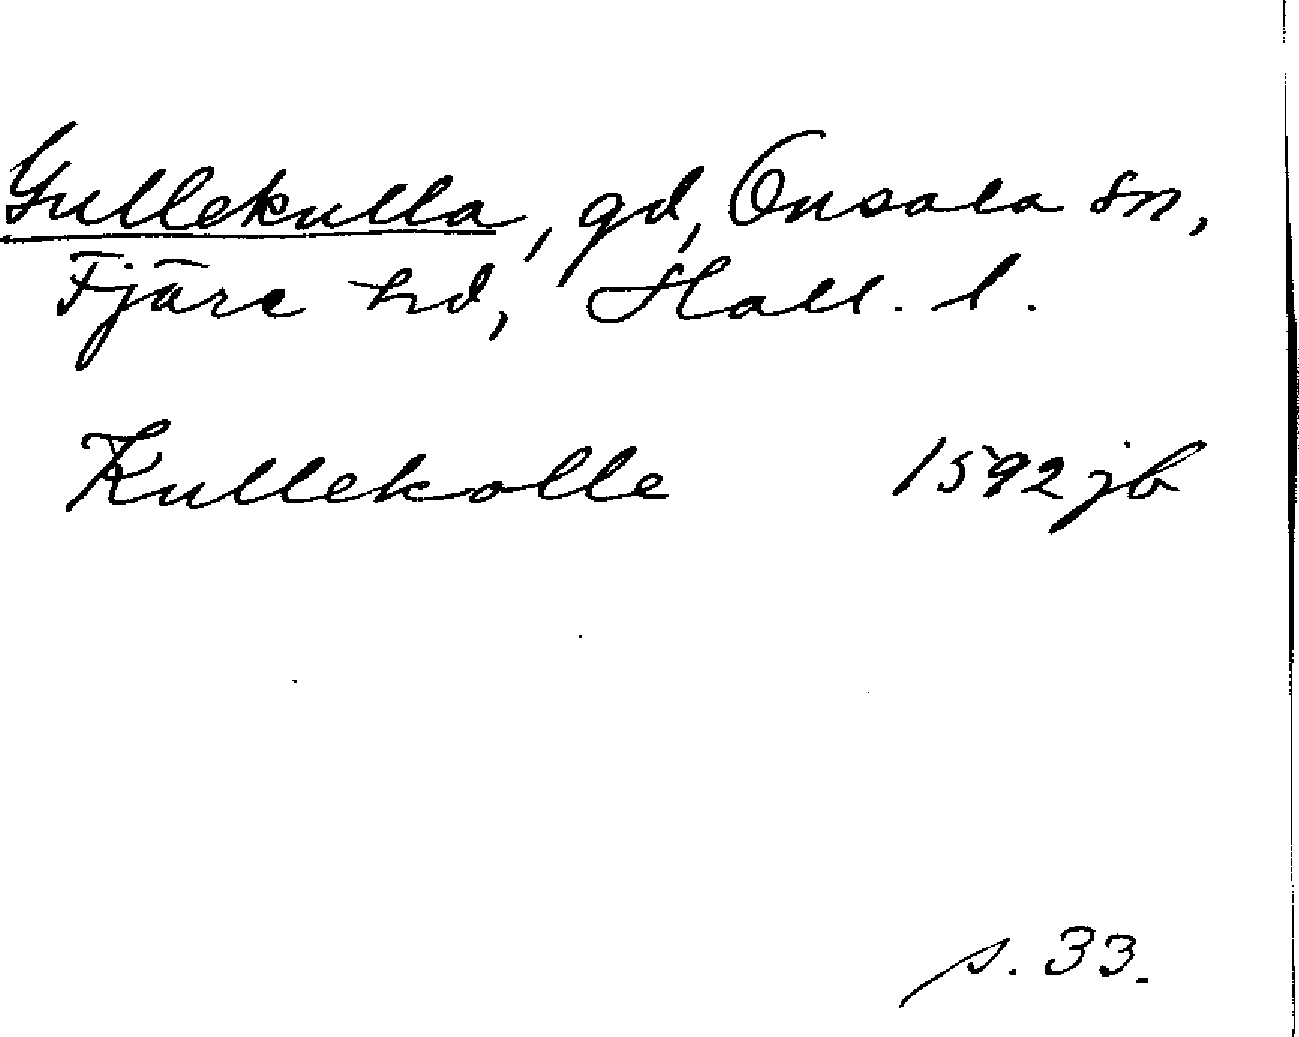 Gullekulla, gd, Onsala sn,
Fjäre hd, Hall. l.
Kullekolle 1592 jb
s. 33.